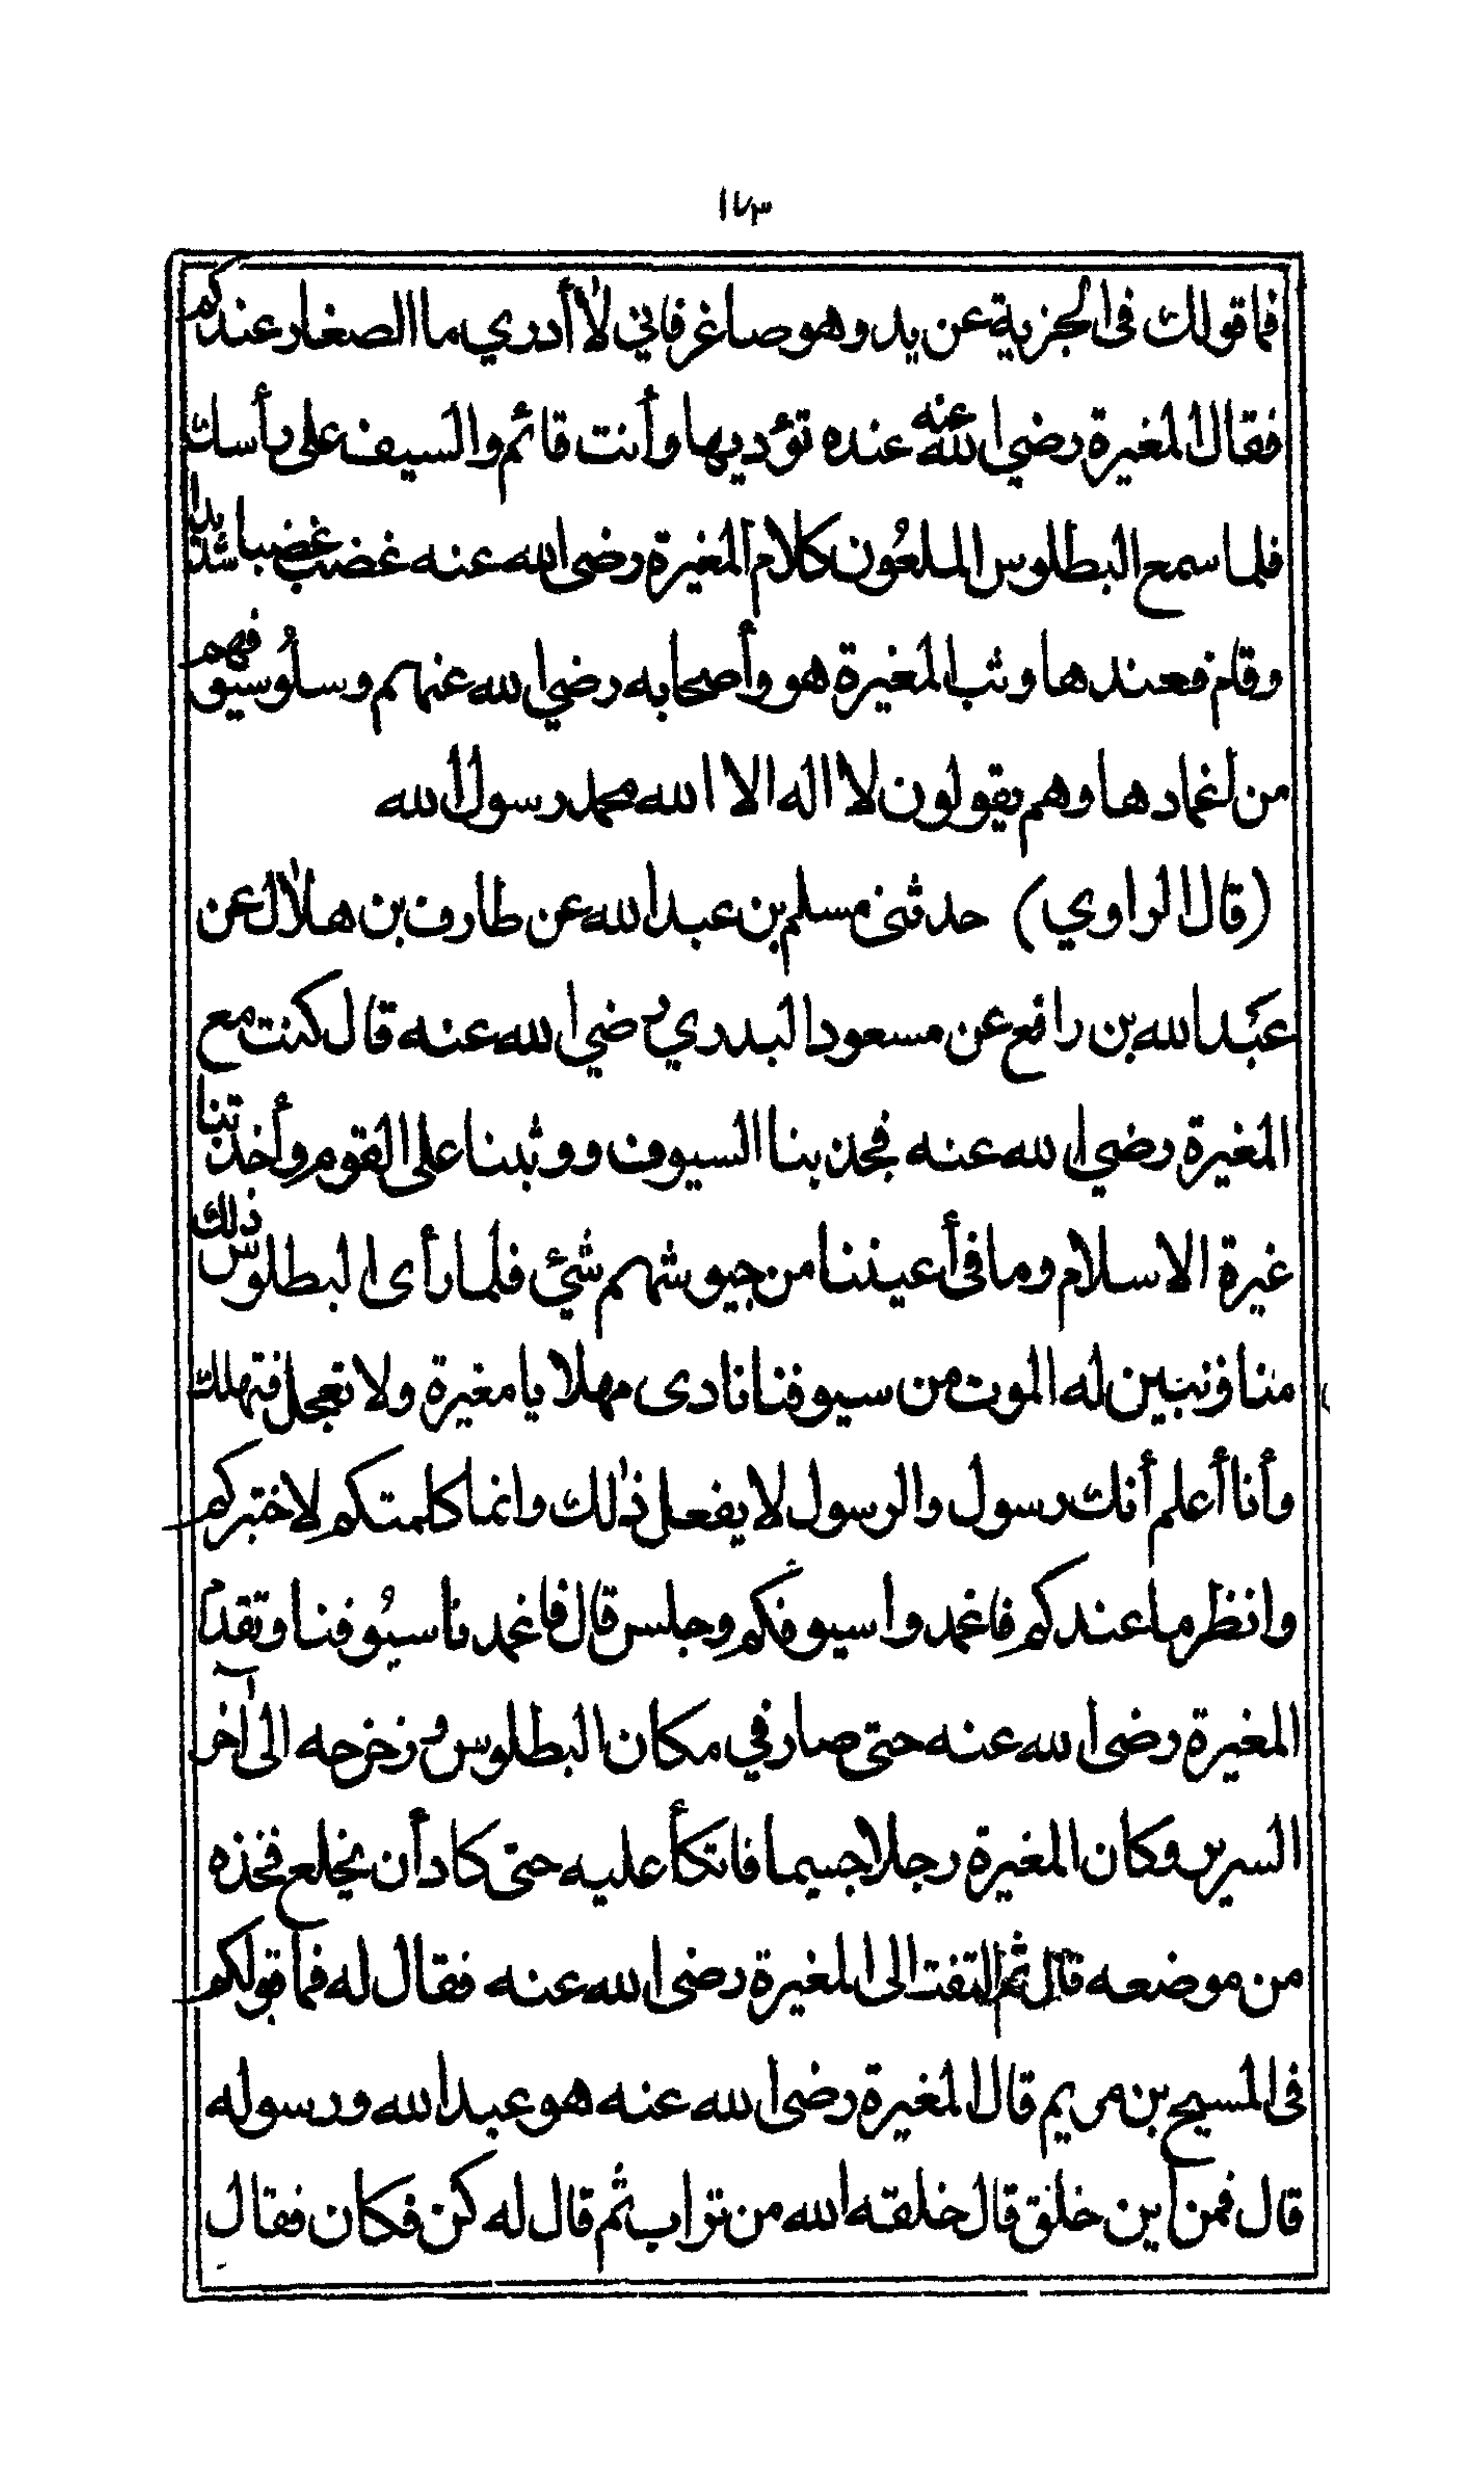 ١٧٣
فما قولك في الجزية عن يد وهو صاغر فاني لا أدري ما الصغار عندكم
فقال المغيرة رضي الله عنه عنده تؤديها وأنت قائم والسيف على رأسك
فلما سمع البطلوس الملعون كلام المغيرة رضى الله عنه غضب غضبا شديدا
وقام فعندها وثب المغيرة هو وأصحابه رضي الله عنهم وسلوا سيوفهم
من اغمادها وهم يقولون لا اله الا الله محمد رسول الله
(قال الراوي) حدثنى مسلم بن عبد الله عن طارف بن هلال عن
عبد الله بن رافع عن مسعود البدري رضي الله عنه قال كنت مع
المغيرة رضي الله عنه فجذبنا السيوف ووثبنا على القوم وأخذتنا
غيرة الاسلام وما فى أعيننا من جيوشهم شئ فلما رأى البطلوس ذلك
منا وتبين له الموت من سيوفنا نادى مهلا يا مغيرة ولا تعجل فتهلك
وأنا أعلم أنك رسول والرسول لا يفعل ذلك وانما كلمتكم لاختبركم
وانظر ما عندكم فاغمدوا سيوفكم وجلس قال فاغمدنا سيوفنا وتقدم
المغيرة رضى الله عنه حتى صار في مكان البطلوس وزخرحه الى آخر
السرير وكان المغيرة رجلا جسيما فاتكأ عليه حتى كاد أن يخلع فخذه
من موضعه قال ثم التفت الى المغيرة رضى الله عنه فقال له فما قولكم
فى المسيح بن مريم قال المغيرة رضى الله عنه هو عبد الله ورسوله
قال فمن اين خلق قال خلقه الله من تراب ثم قال له كن فكان فقال